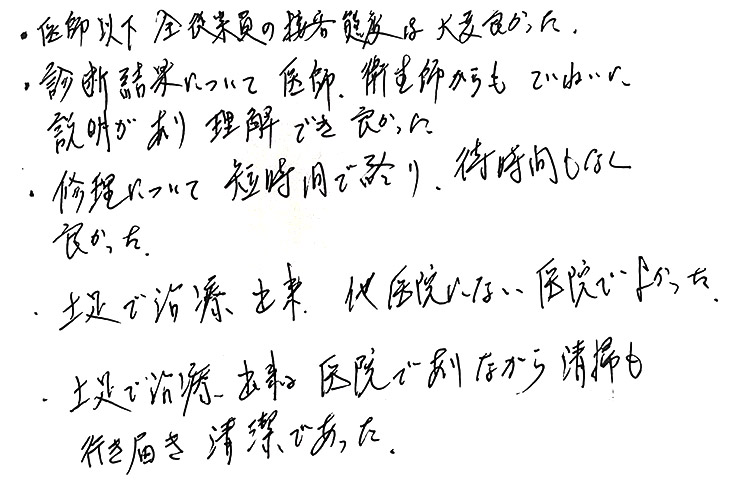 ・医師以下全従業員の接客態度は大変良かった.
・診断結果について医師、衛生師からもていねいに
説明があり理解でき良かった
・修理について短時間で終り、待時間もなく
良かった.
・土足で治療、出来. 他医院にない医院でよかった.
・土足で治療、出来る医院でありながら清掃も
行き届き清潔であった.